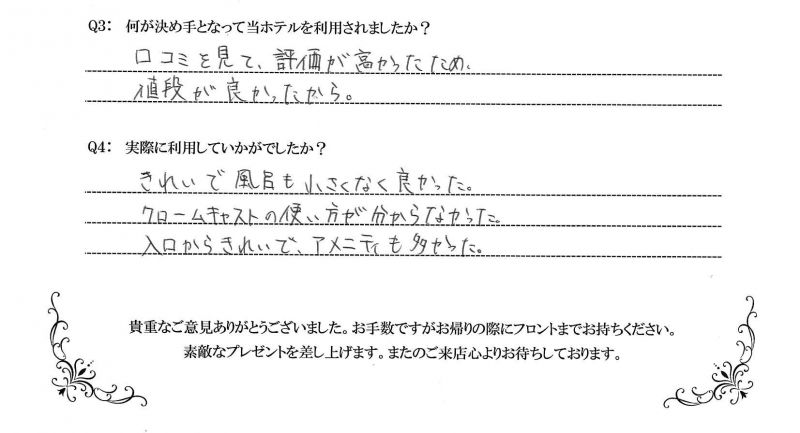 Q3: 何が決め手となって当ホテルを利用されましたか？
口コミを見て、評価が高かったため、
値段が良かったから。
Q4: 実際に利用していかがでしたか？
きれいで風呂も小さくなく良かった。
クロームキャストの使い方が分からなかった。
入口からきれいで、アメニティも多かった。
貴重なご意見ありがとうございました。お手数ですがお帰りの際にフロントまでお持ちください。
素敵なプレゼントを差し上げます。またのご来店心よりお待ちしております。